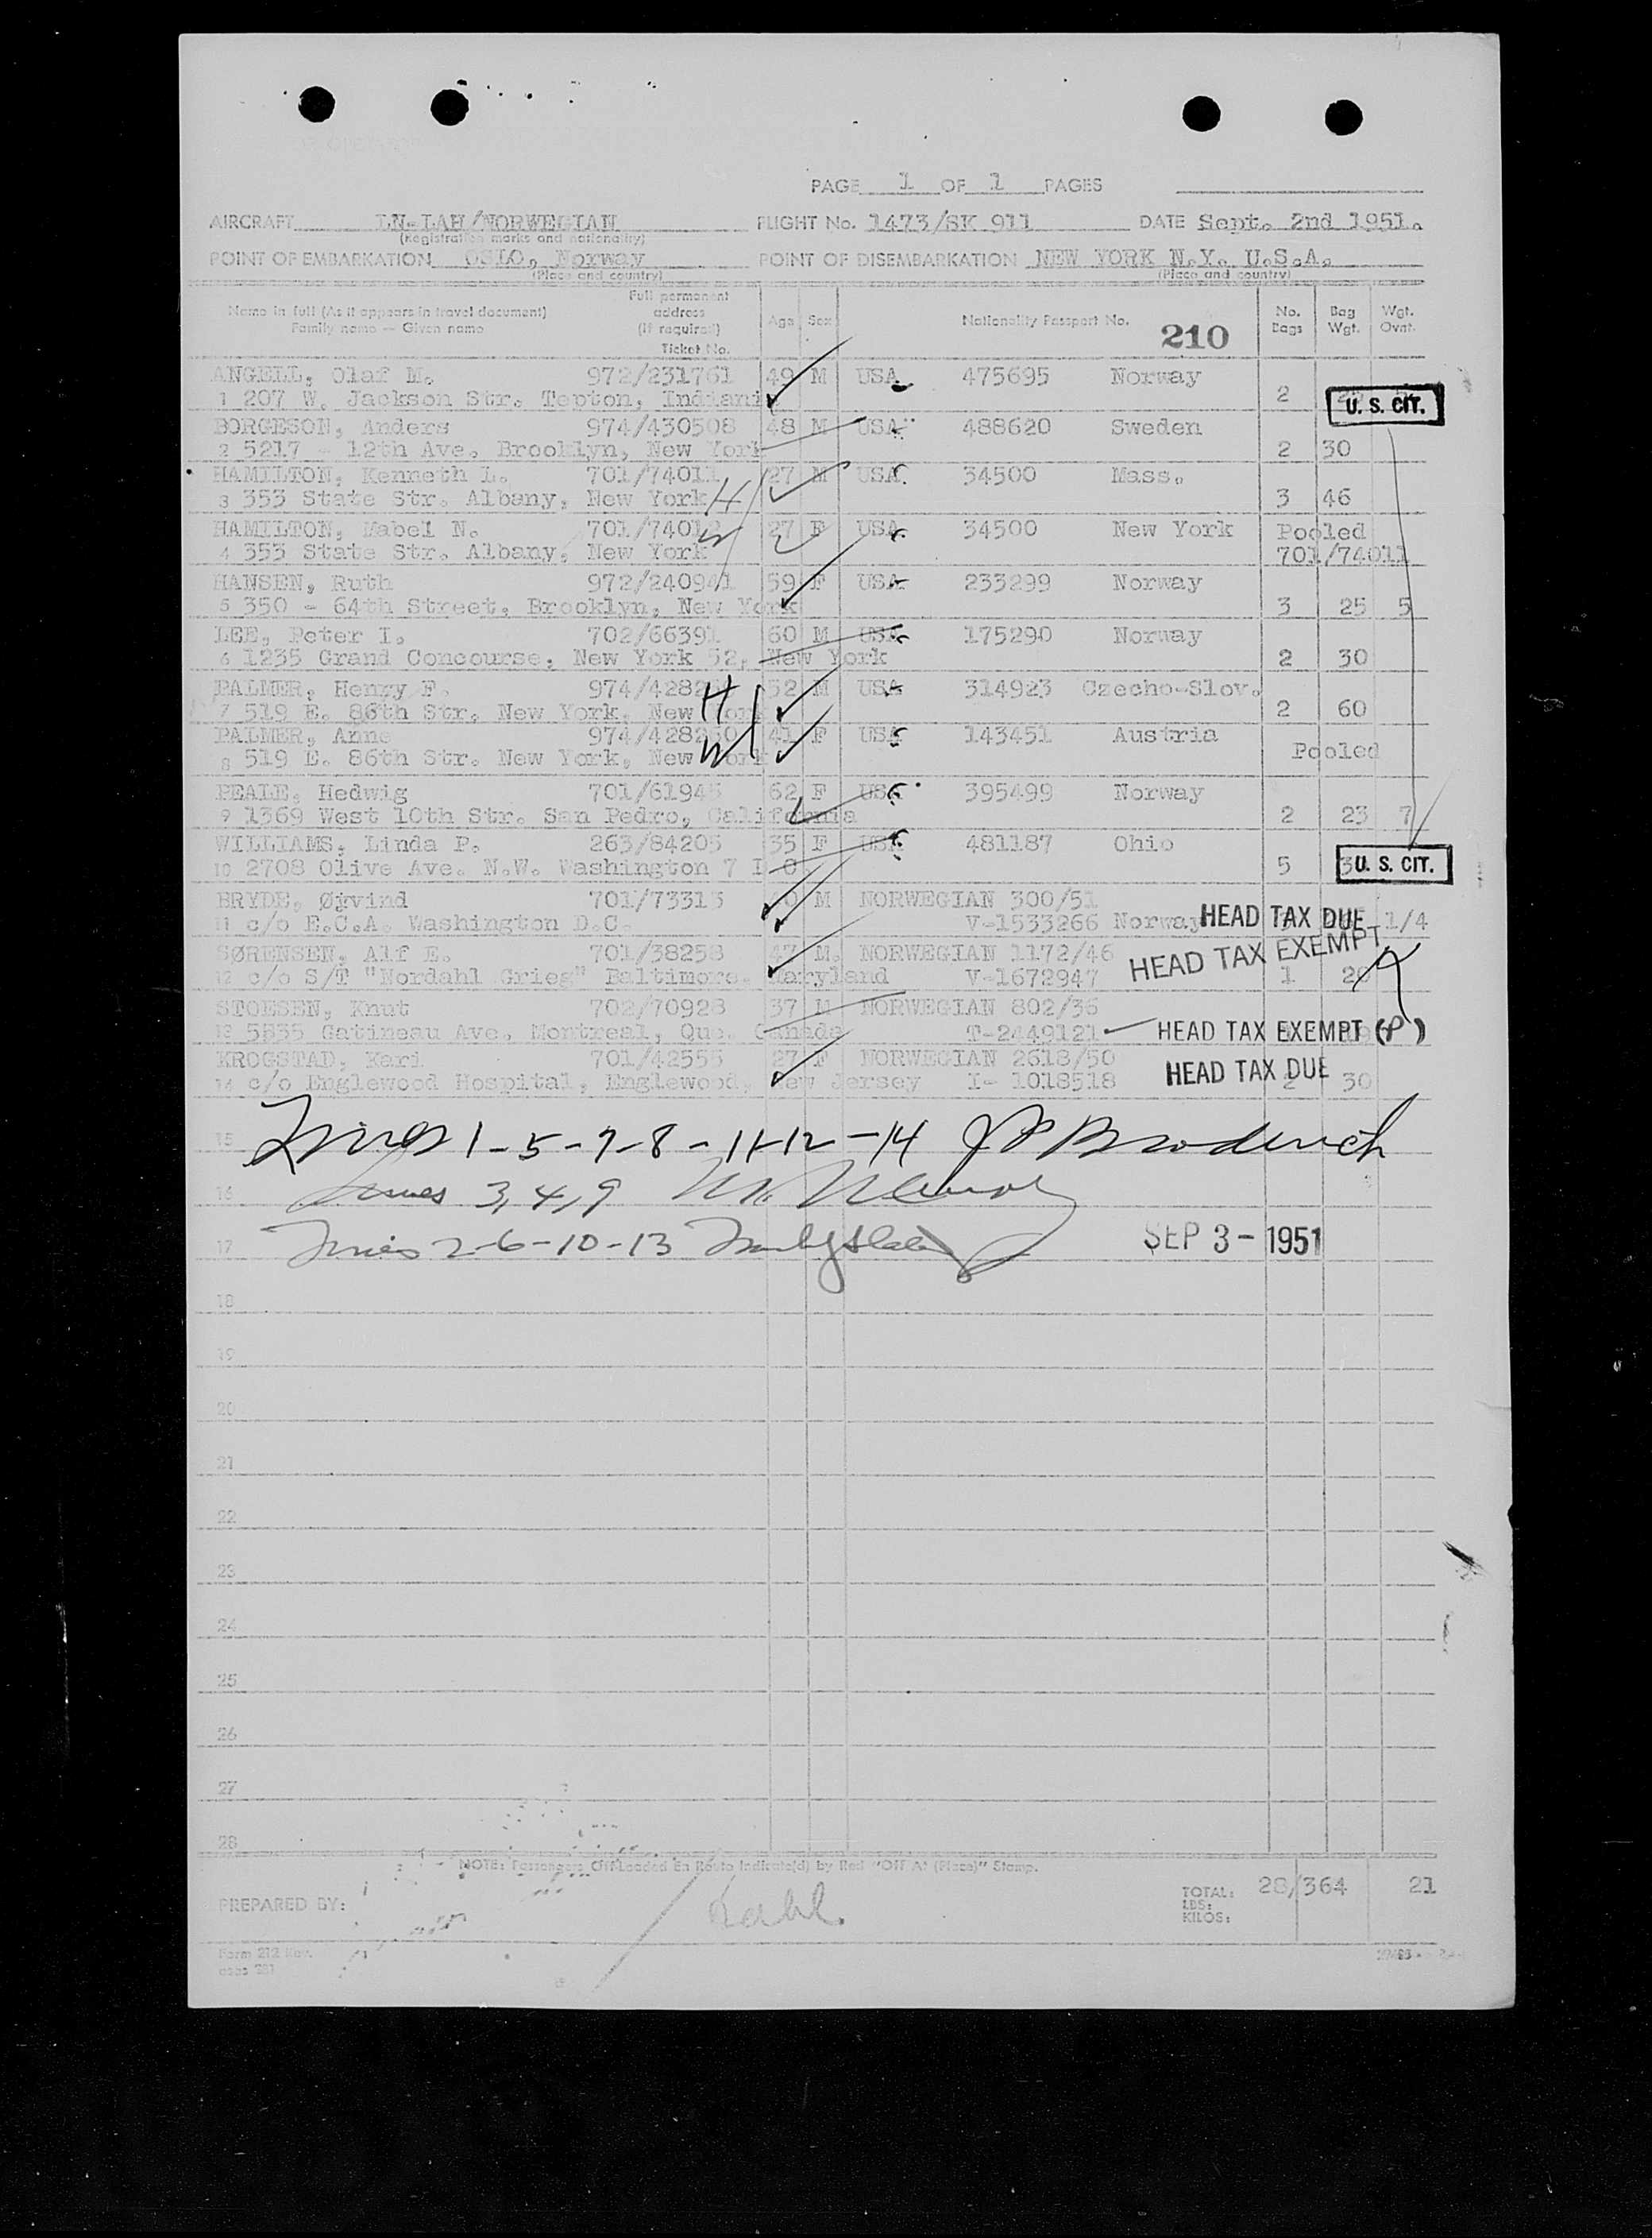 PAGE 1 OF 1 PAGES
AIRCRAFT LN-LAH/NORWEGIAN FLIGHT No. 1473/SK 911 DATE Sept. 2nd 1951.
(Registration marks and nationality)
POINT OF EMBARKATION OSLO, Norway POINT OF DISEMBARKATION NEW YORK N.Y. U.S.A.
(Place and country) (Place and country)
Name in full (As it appears in travel document) Family name — Given name Full permanent address (If required) Ticket No. Age Sex Nationality Passport No. 210 No. Bags Bag Wgt. Wgt. Ovnt.
ANGELL, Olaf M. 972/231761 49 M USA 475695 Norway
1 207 W. Jackson Str. Tepton, Indiana 2 U. S. CIT.
BORGESON, Anders 974/430508 48 M USA 488620 Sweden
2 5217 - 12th Ave. Brooklyn, New York 2 30
HAMILTON, Kenneth L. 701/74011 27 M USA 34500 Mass.
3 353 State Str. Albany, New York H 3 46
HAMILTON, Mabel N. 701/74012 27 F USA 34500 New York Pooled
4 353 State Str. Albany, New York W 701/74011
HANSEN, Ruth 972/240941 59 F USA 233299 Norway
5 350 - 64th Street, Brooklyn, New York 3 25 5
LEE, Peter I. 702/66391 60 M USA 175290 Norway
6 1235 Grand Concourse, New York 52, New York 2 30
PALMER, Henry F. 974/4282 H 52 M USA 314923 Czecho-Slov.
7 519 E. 86th Str. New York, New York 2 60
PALMER, Anne 974/428250 41 F USA 143451 Austria
8 519 E. 86th Str. New York, New York W Pooled
PEALE, Hedwig 701/61945 62 F USA 395499 Norway
9 1369 West 10th Str. San Pedro, California 2 23 7
WILLIAMS, Linda P. 263/84205 35 F USA 481187 Ohio
10 2708 Olive Ave. N.W. Washington 7 D.C. 5 U. S. CIT.
BRYDE, Øyvind 701/73313 M NORWEGIAN 300/51
11 c/o E.C.A. Washington D.C. V-1533266 Norway HEAD TAX DUE 1/4
SØRENSEN, Alf E. 701/38258 47 M. NORWEGIAN 1172/46 HEAD TAX EXEMPT
12 c/o S/T "Nordahl Grieg" Baltimore, Maryland V-1672947 1 20
STOESEN, Knut 702/70928 37 M NORWEGIAN 802/36
13 5835 Gatineau Ave. Montreal, Que. Canada T-2449121 HEAD TAX EXEMPT (P)
KROGSTAD, Kari 701/42555 27 F NORWEGIAN 2618/50
14 c/o Englewood Hospital, Englewood, New Jersey I- 1018518 HEAD TAX DUE 2 30
15 Lines 1-5-7-8-11-12-14 J P Broderick
16 Lines 3, 4, 9
17 Lines 2-6-10-13 SEP 3- 1951
18
19
20
21
22
23
24
25
26
27
28
NOTE: Passengers Off Loaded En Route Indicate(d) by Red "Off At (Place)" Stamp.
PREPARED BY: TOTAL: LBS: KILOS: 28/364 21
Form 212 Rev.